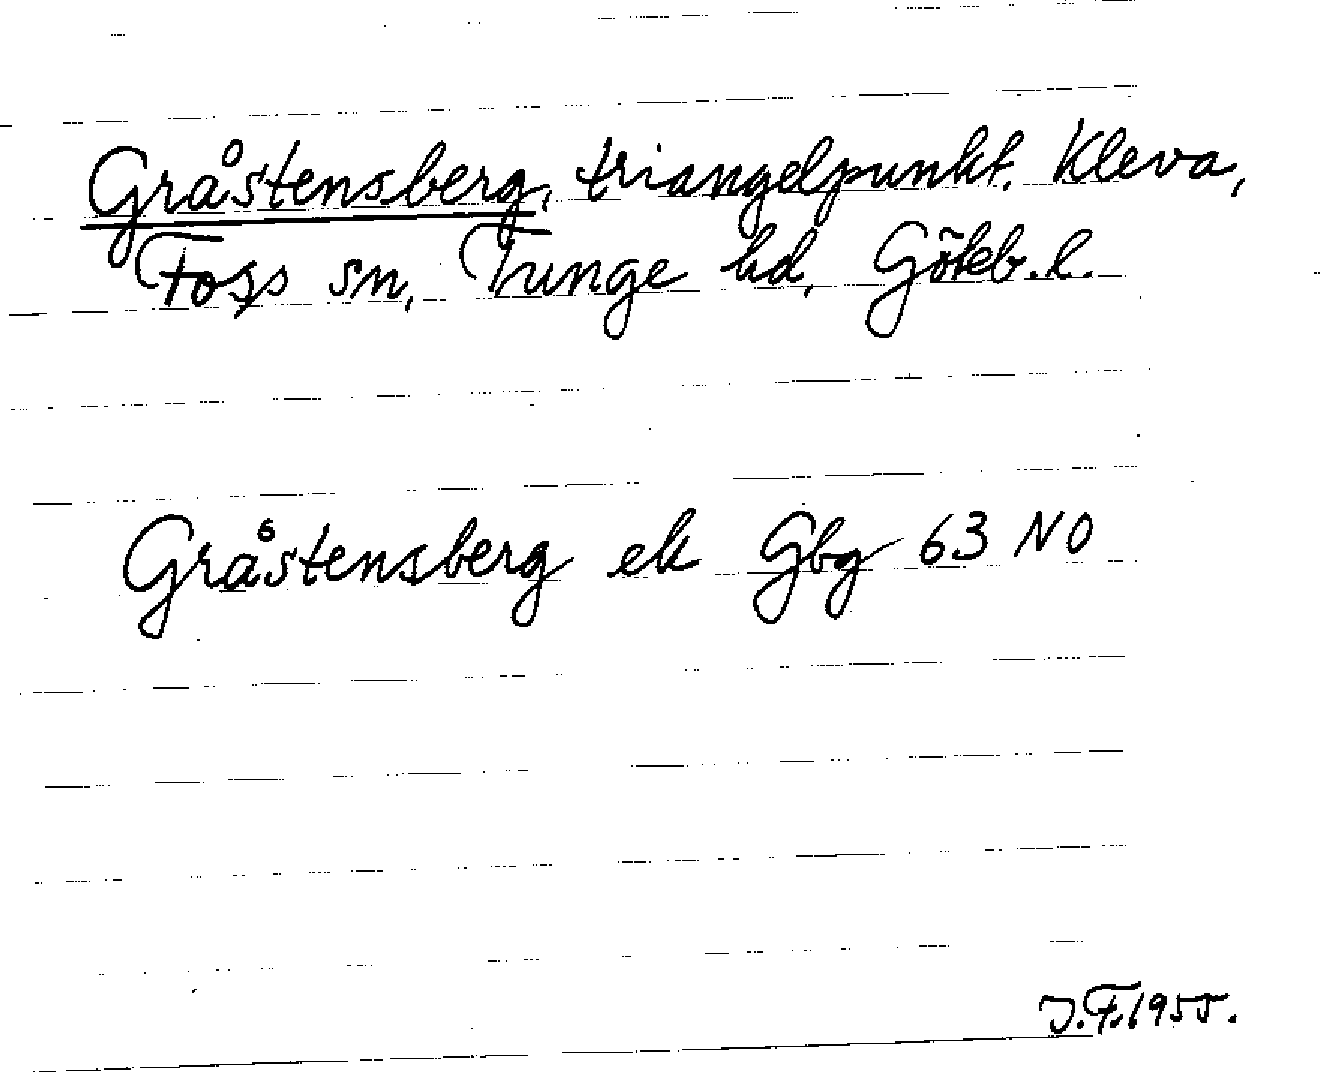 Gråstensberg, triangelpunkt. Kleva,
Foss sn, Tunge hd, Göteb. l.
Gråstensberg ek Gbg 63 NO
J.F. 1955.